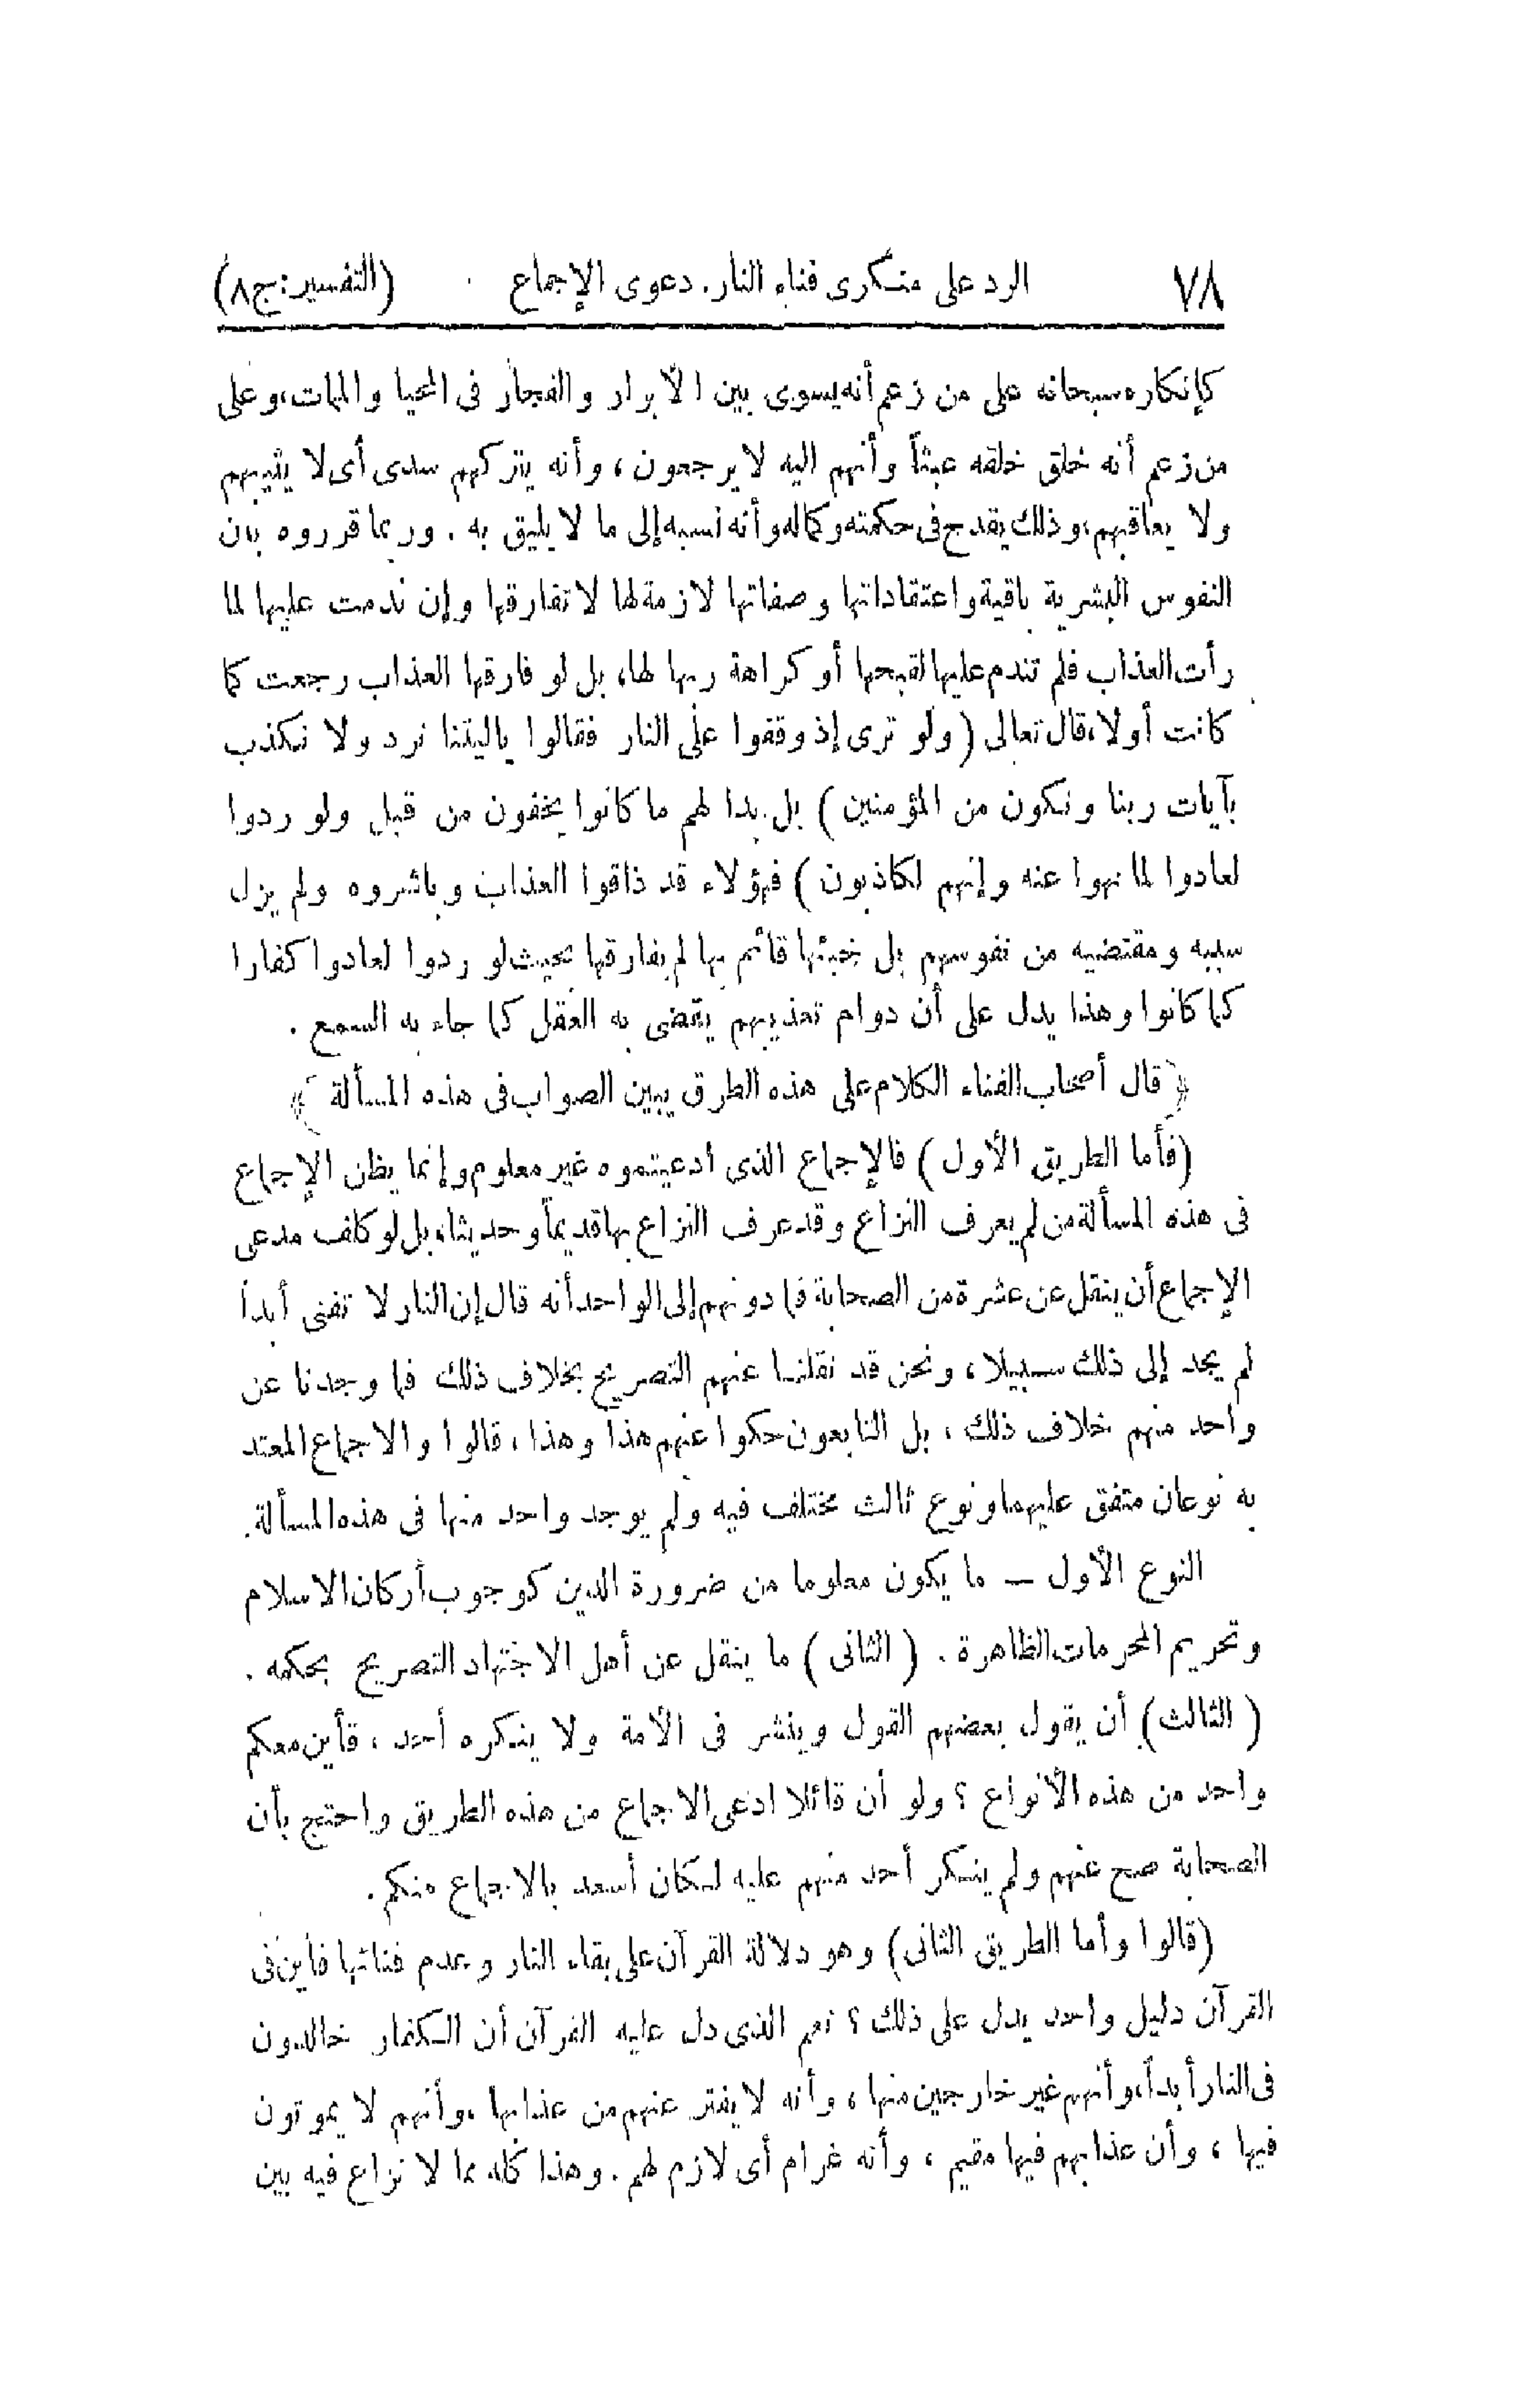 ٧٨ الرد على منكرى فناء النار. دعوى الإجماع (التفسير: ج ٨)
كإنكاره سبحانه على من زعم أنه يسوى بين الأبرار والفجار فى المحيا والممات، وعلى
من زعم أنه خلق خلقه عبثاً وأنهم اليه لا يرجعون ، وأنه يتركهم سدى أى لا يثيبهم
ولا يعاقبهم، وذلك يقدح فى حكمته وكماله وأنه نسبه إلى ما لا يليق به . وربما قرروه بان
النفوس البشرية باقية واعتقاداتها وصفاتها لازمة لها لا تفارقها وإن ندمت عليها لما
رأت العذاب فلم تندم عليها لقبحها أو كراهة ربها لها، بل لو فارقها العذاب رجعت كما
كانت أولا، قال تعالى ( ولو ترى إذ وقفوا على النار فقالوا ياليتنا نرد ولا نكذب
بآيات ربنا ونكون من المؤمنين ) بل بدا لهم ما كانوا يخفون من قبل ولو ردوا
لعادوا لما نهوا عنه وإنهم لكاذبون ) فهؤلاء قد ذاقوا العذاب وباشروه ولم يزل
سببه ومقتضيه من نفوسهم بل خبثها قائم بها لم يفارقها بحيث لو ردوا لعادوا كفارا
كما كانوا وهذا يدل على أن دوام تعذيبهم يقضى به العقل كما جاء به السمع .
﴿ قال أصحاب الفناء الكلام على هذه الطرق يبين الصواب فى هذه المسألة ﴾
(فأما الطريق الأول ) فالإجماع الذى ادعيتموه غير معلوم وإنما يظن الإجماع
فى هذه المسألة من لم يعرف النزاع وقد عرف النزاع بها قديماً وحديثاً، بل لو كلف مدعى
الإجماع أن ينقل عن عشرة من الصحابة فما دونهم إلى الواحد أنه قال إن النار لا تفنى أبداً
لم يجد إلى ذلك سبيلا ، ونحن قد نقلنا عنهم التصريح بخلاف ذلك فما وجدنا عن
واحد منهم خلاف ذلك ، بل التابعون حكوا عنهم هذا وهذا ، قالوا والاجماع المعتد
به نوعان متفق عليهما ونوع ثالث مختلف فيه ولم يوجد واحد منها فى هذه المسألة.
النوع الأول — ما يكون معلوما من ضرورة الدين كوجوب أركان الاسلام
وتحريم المحرمات الظاهرة . ( الثانى ) ما ينقل عن أهل الاجتهاد التصريح بحكمه .
( الثالث ) أن يقول بعضهم القول وينشر فى الأمة ولا ينكره أحد ، فأين معكم
واحد من هذه الأنواع ؟ ولو أن قائلا ادعى الاجماع من هذه الطريق واحتج بأن
الصحابة صح عنهم ولم ينكر أحد منهم عليه لكان أسعد بالاجماع منكم .
(قالوا وأما الطريق الثانى) وهو دلالة القرآن على بقاء النار وعدم فنائها فأين فى
القرآن دليل واحد يدل على ذلك ؟ نعم الذى دل عليه القرآن أن الكفار خالدون
فى النار أبداً، وأنهم غير خارجين منها ، وأنه لا يفتر عنهم من عذابها ، وأنهم لا يموتون
فيها ، وأن عذابهم فيها مقيم ، وأنه غرام أى لازم لهم . وهذا كله مما لا نزاع فيه بين